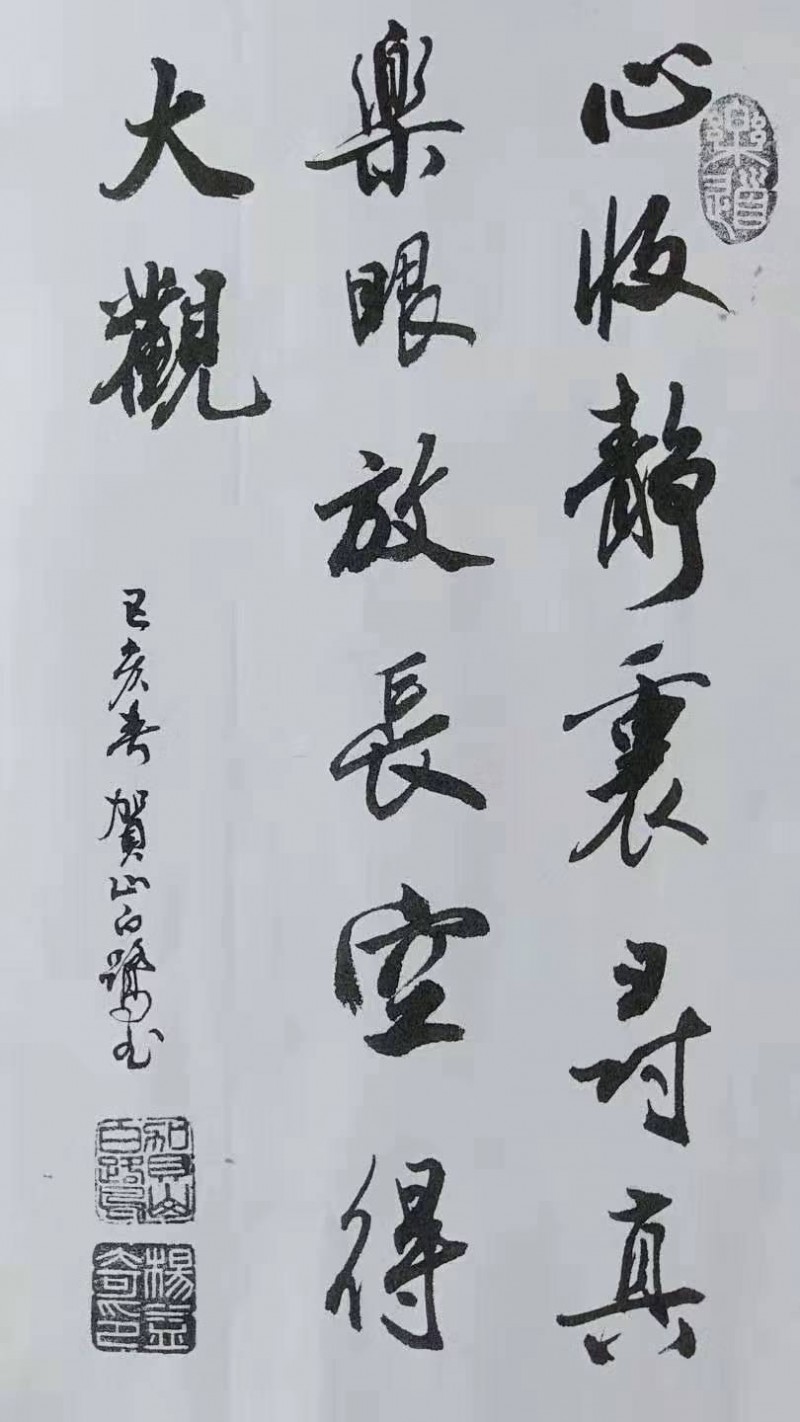 心收静裏尋真
樂眼放長空得
大觀
己亥春賀山白鷺書
樂道
賀山白鷺
楊益奇印